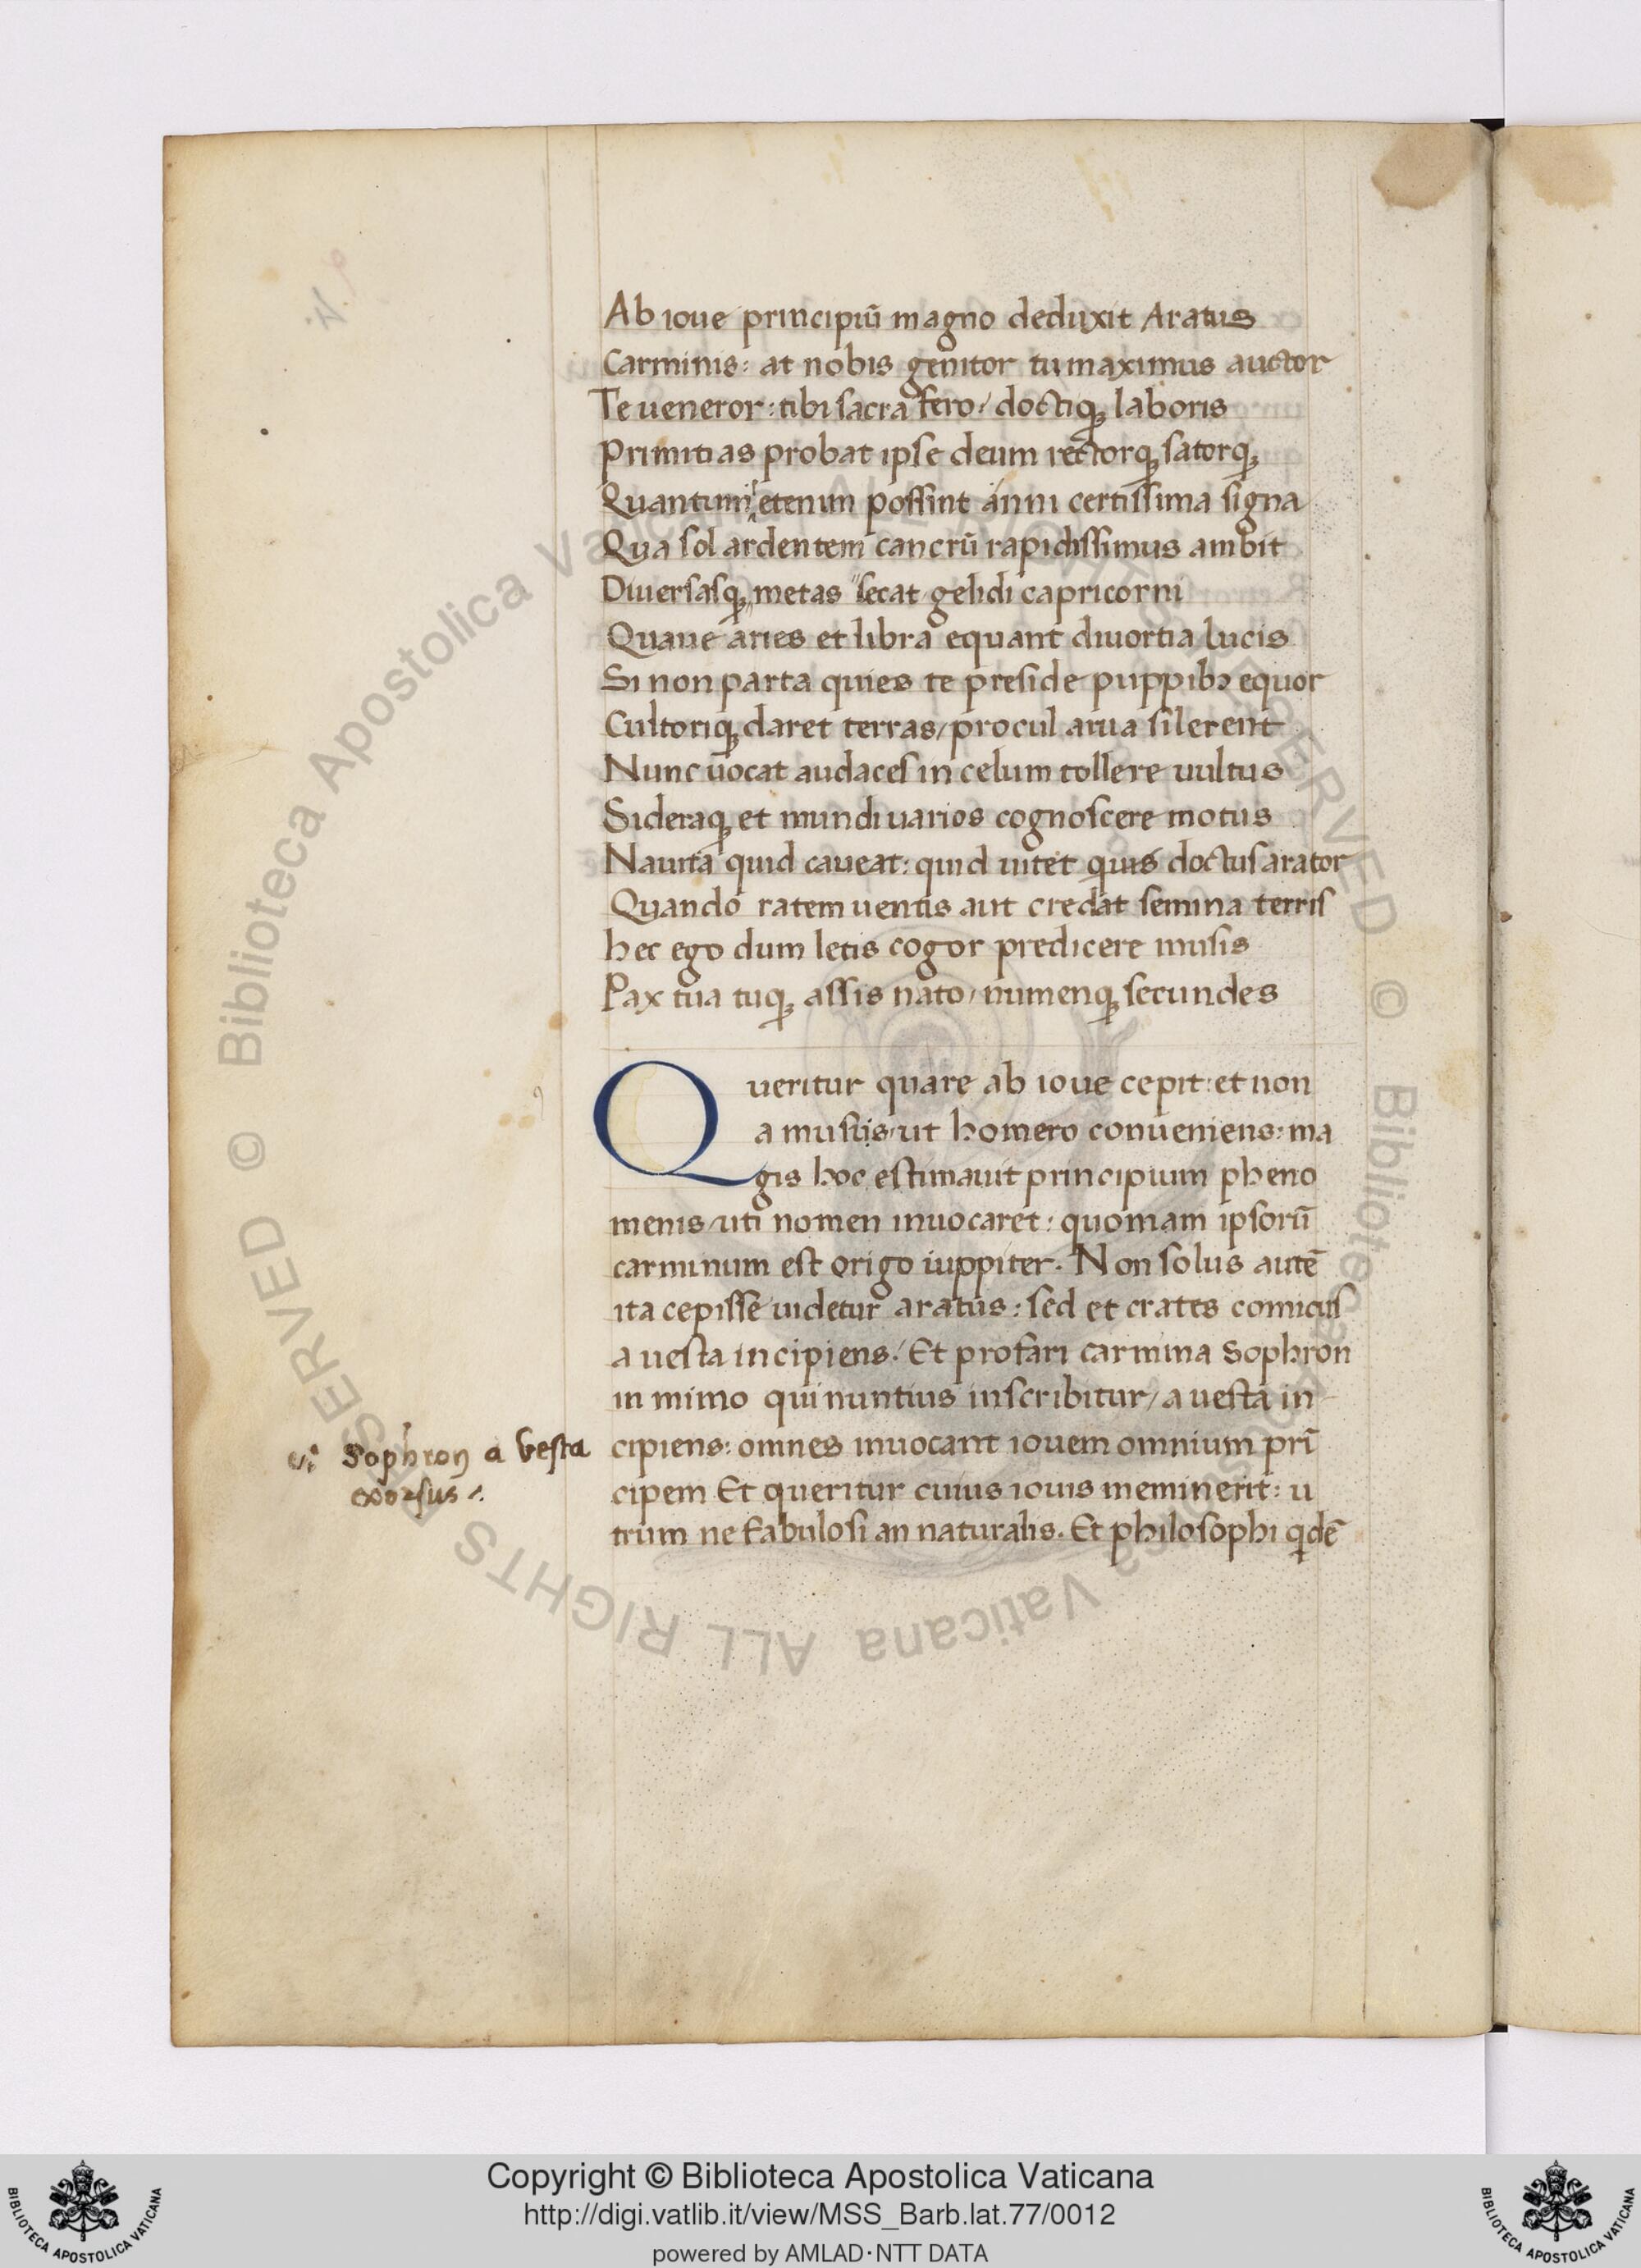 Ab ioue principiū magno deduxit Aratus
Carminis: at nobis genitor tu maximus auctor
Te ueneror: tibi sacra fero/ doctiq; laboris
Primitias probat ipse deum rectorq; satorq;
Quantum etenim possint anni certissima signa
Qua sol ardentem cancrū rapidissimus ambit
Diuersasq; metas secat gelidi capricorni
Quaue aries et libra equant diuortia lucis
Si non parta quies te preside puppibꝫ equor
Cultoriq; daret terras/ procul arua silerent
Nunc uocat audaces in celum tollere uultus
Sideraq; et mundi uarios cognoscere motus
Nauita quid caueat: quid uitet quis doctus arator
Quando ratem uentis aut credat semina terris
hec ego dum letis cogor predicere musis
Pax tua tuq; assis nato/ numenq; secundes
Queritur quare ab ioue cepit: et non
a musiis/ ut homero conueniens: ma
gis hoc estimauit principium pheno
menis/ uti nomen inuocaret: quoniam ipsorū
carminum est origo iuppiter. Non solus autē
ita cepisse uidetur aratus: sed et crates comicus
a uesta incipiens/ Et profari carmina Sophron
in mimo qui nuntius inscribitur/ a uesta in
cipiens: omnes inuocant iouem omnium prī
cipem Et queritur cuius iouis meminerit: u
trum ne fabulosi an naturalis. Et philosophi qdē
Sophron a Vesta
exorsus
© Biblioteca Apostolica Vaticana ALL RIGHTS RESERVED © Biblioteca Apostolica Vaticana ALL RIGHTS RESERVED
Copyright © Biblioteca Apostolica Vaticana
http://digi.vatlib.it/view/MSS_Barb.lat.77/0012
powered by AMLAD·NTT DATA
BIBLIOTECA APOSTOLICA VATICANA
BIBLIOTECA APOSTOLICA VATICANA